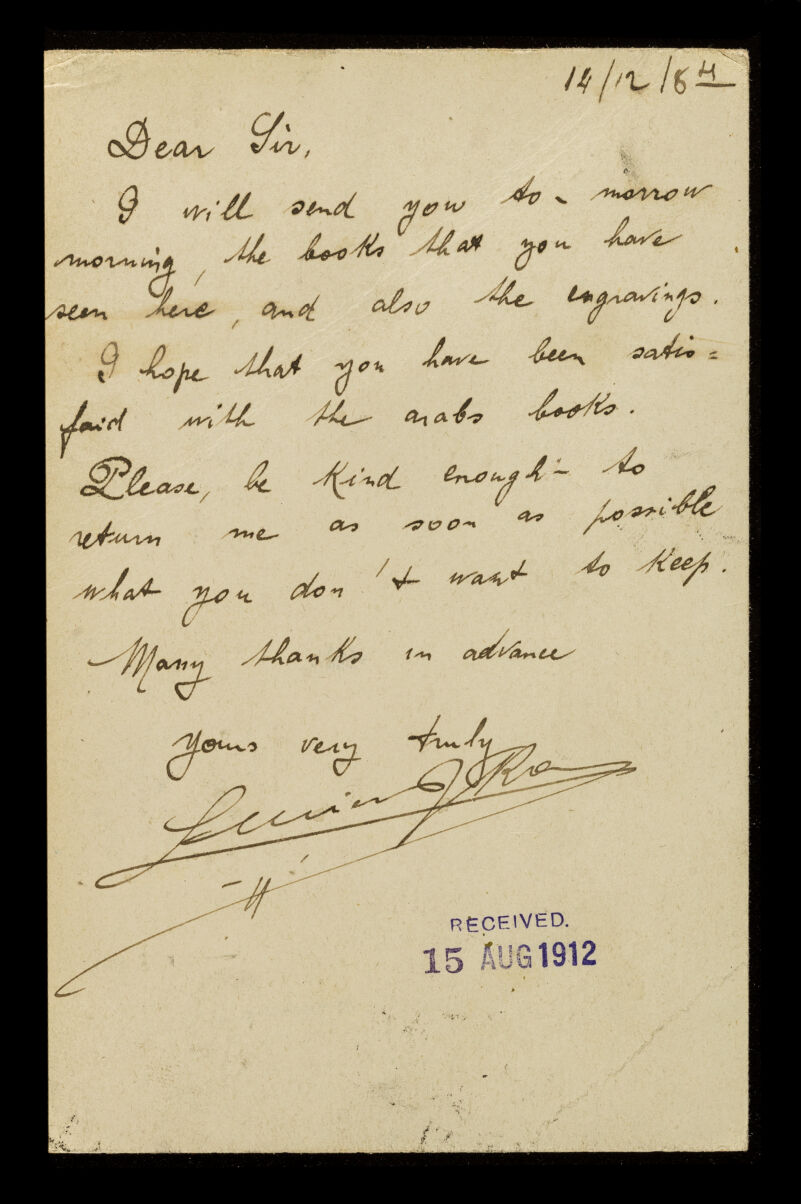 14/12/8
Dear Sir,
I will send you to-morrow
morning, the books that you have
seen here, and also the engravings.
I hope that you have been satis=
faid with the arabs books.
Please, be kind enough - to
return me as soon as possible
what you don't want to keep.
Many thanks in advance
yours very truly
RECEIVED.
15 AUG 1912